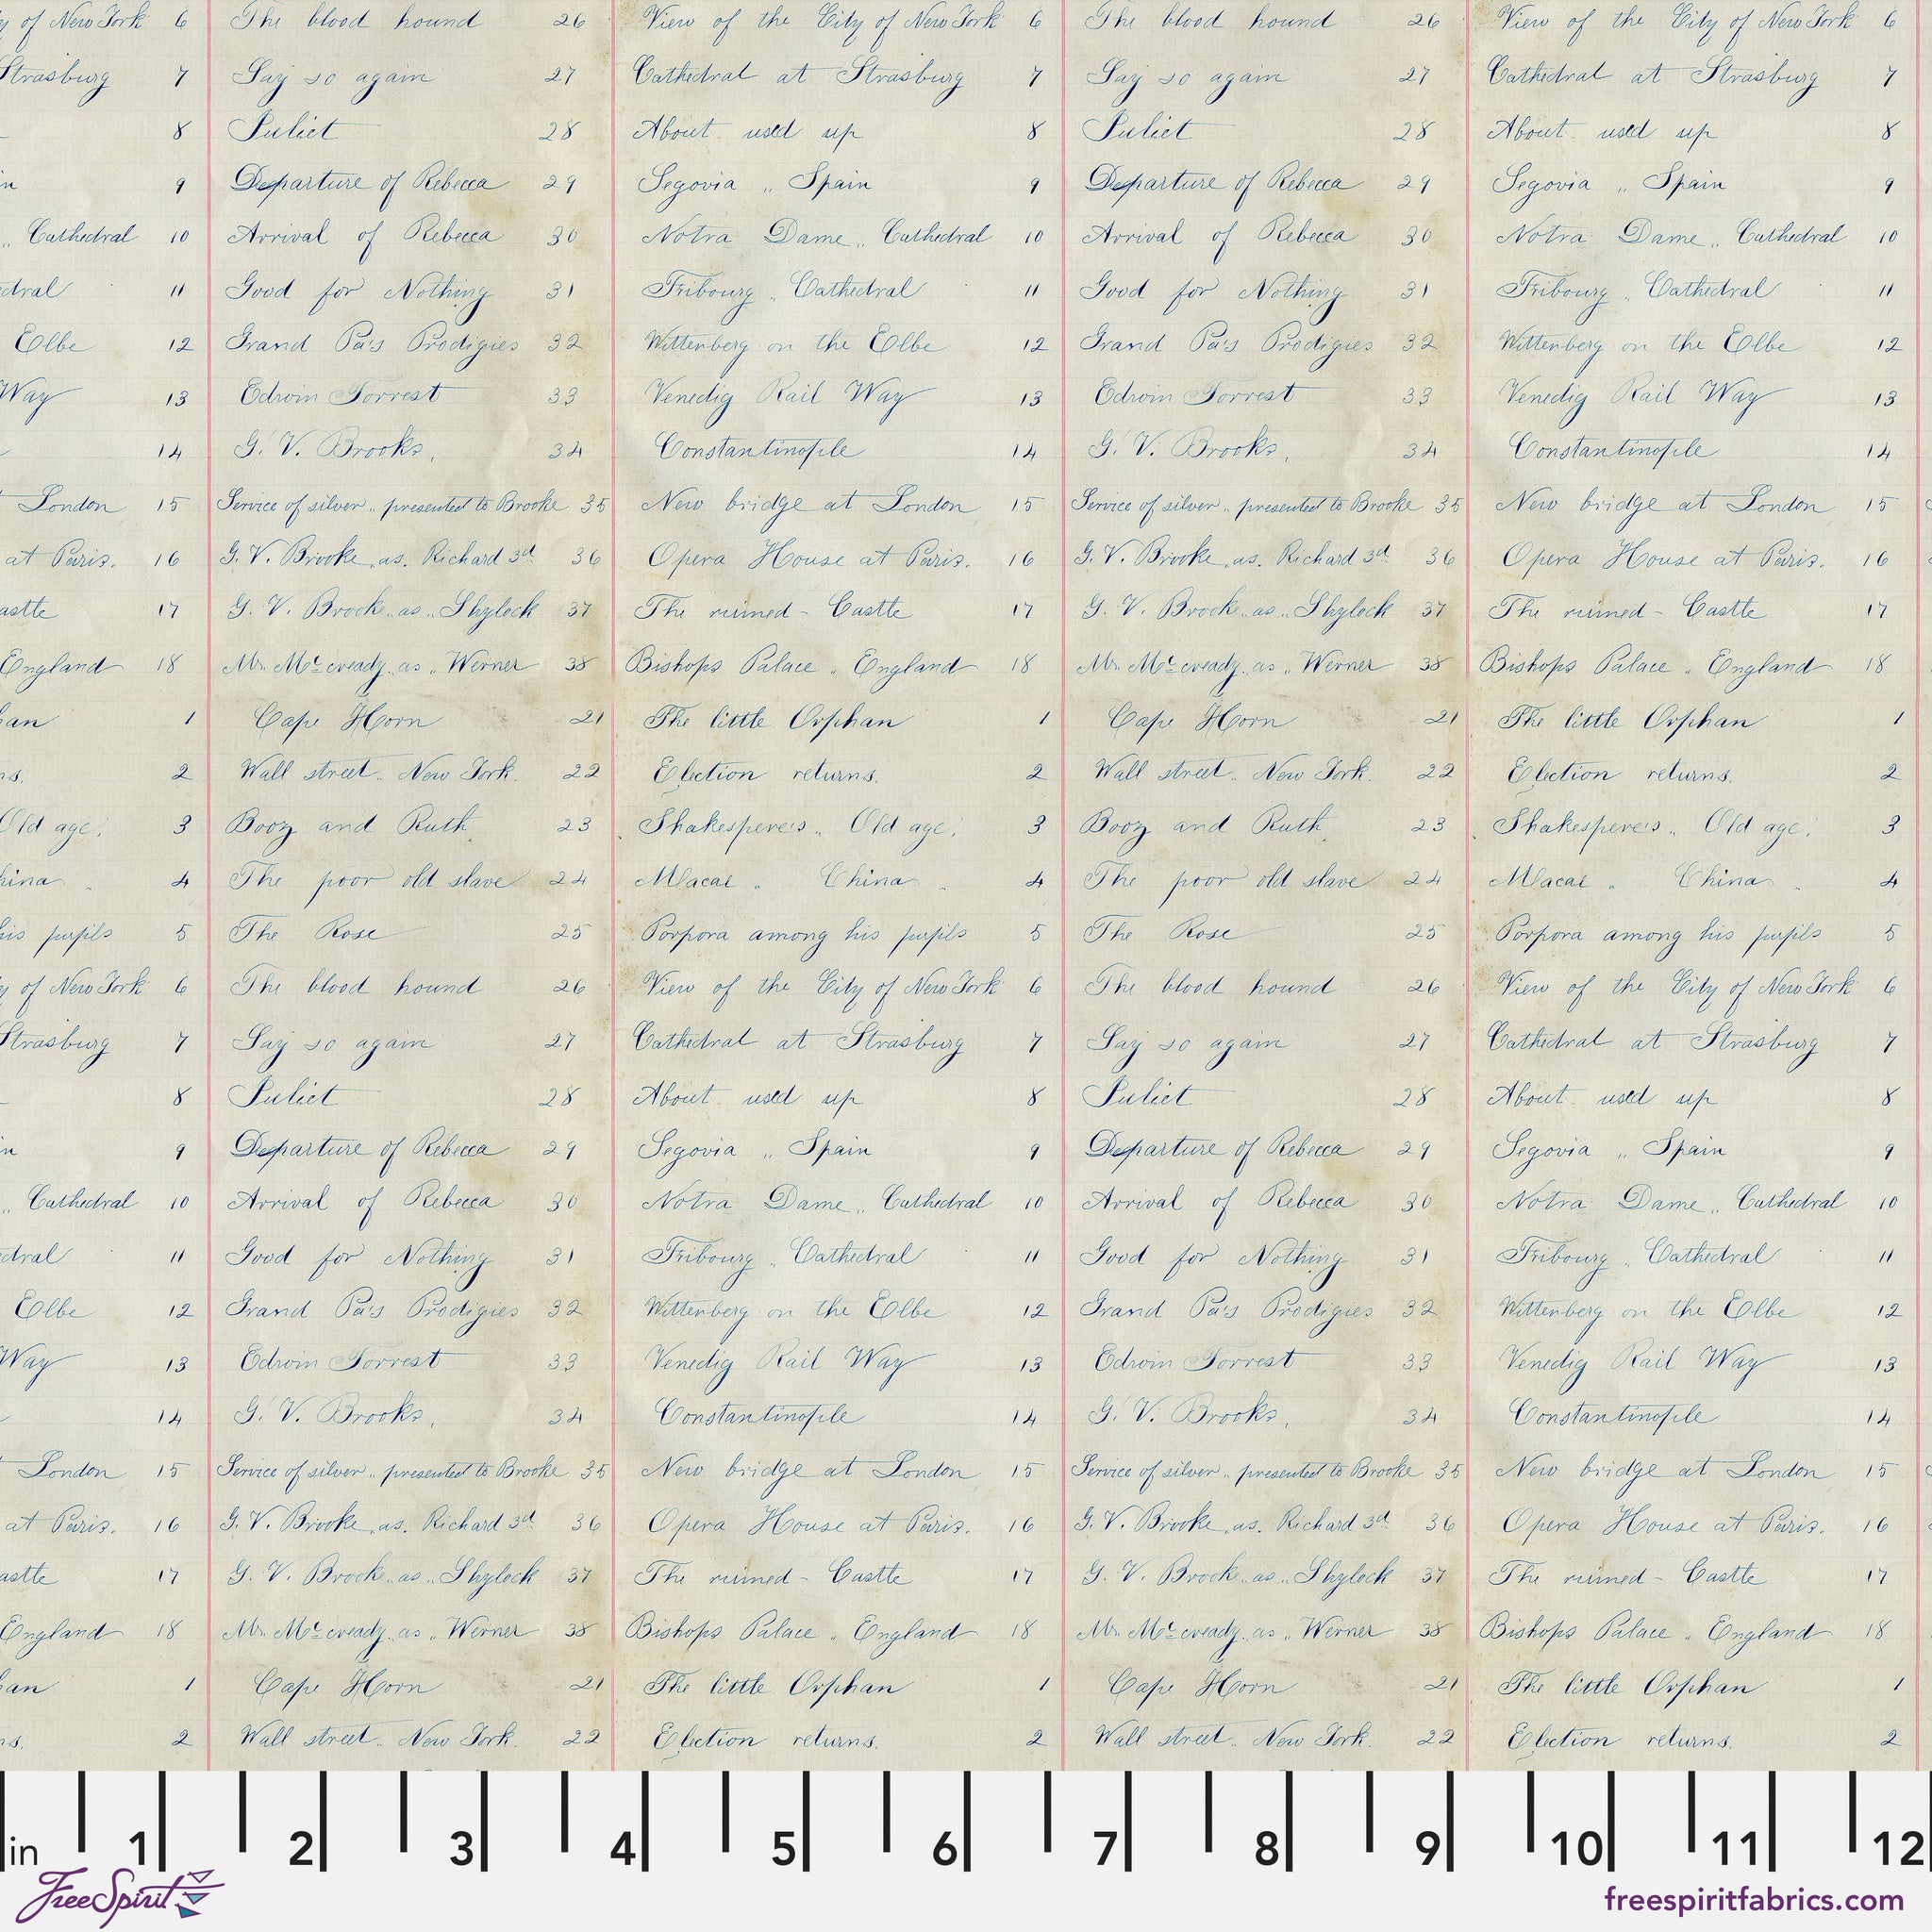 y of New York 6 The blood hound 26 View of the City of New York 6 The blood hound 26 View of the City of New York 6
Strasburg 7 Say so again 27 Cathedral at Strasburg 7 Say so again 27 Cathedral at Strasburg 7
8 Juliet 28 About used up 8 Juliet 28 About used up 8
in 9 Departure of Rebecca 29 Segovia „ Spain 9 Departure of Rebecca 29 Segovia „ Spain 9
„ Cathedral 10 Arrival of Rebecca 30 Notra Dame „ Cathedral 10 Arrival of Rebecca 30 Notra Dame „ Cathedral 10
edral 11 Good for Nothing 31 Fribourg „ Cathedral 11 Good for Nothing 31 Fribourg „ Cathedral 11
Elbe 12 Grand Pa's Prodigies 32 Wittenberg on the Elbe 12 Grand Pa's Prodigies 32 Wittenberg on the Elbe 12
Way 13 Edwin Forrest 33 Venedig Rail Way 13 Edwin Forrest 33 Venedig Rail Way 13
14 G. V. Brooks. 34 Constantinople 14 G. V. Brooks. 34 Constantinople 14
London 15 Service of silver „ presented to Brooke 35 New bridge at London 15 Service of silver „ presented to Brooke 35 New bridge at London 15
at Paris. 16 G. V. Brooke „ as. Richard 3d 36 Opera House at Paris. 16 G. V. Brooke „ as. Richard 3d 36 Opera House at Paris. 16
astle 17 G. V. Brooke „ as „ Shylock 37 The ruined - Castle 17 G. V. Brooke „ as „ Shylock 37 The ruined - Castle 17
England 18 Mr. Mc.cready „ as „ Werner 38 Bishops Palace „ England 18 Mr. Mc.cready „ as „ Werner 38 Bishops Palace „ England 18
han 1 Cape Horn 21 The little Orphan 1 Cape Horn 21 The little Orphan 1
ns. 2 Wall street „ New York. 22 Election returns. 2 Wall street „ New York. 22 Election returns. 2
Old age. 3 Booz and Ruth 23 Shakespere's „ Old age. 3 Booz and Ruth 23 Shakespere's „ Old age. 3
hina „ 4 The poor old slave 24 Macai „ China „ 4 The poor old slave 24 Macai „ China „ 4
his pupils 5 The Rose 25 Porpora among his pupils 5 The Rose 25 Porpora among his pupils 5
y of New York 6 The blood hound 26 View of the City of New York 6 The blood hound 26 View of the City of New York 6
Strasburg 7 Say so again 27 Cathedral at Strasburg 7 Say so again 27 Cathedral at Strasburg 7
8 Juliet 28 About used up 8 Juliet 28 About used up 8
in 9 Departure of Rebecca 29 Segovia „ Spain 9 Departure of Rebecca 29 Segovia „ Spain 9
„ Cathedral 10 Arrival of Rebecca 30 Notra Dame „ Cathedral 10 Arrival of Rebecca 30 Notra Dame „ Cathedral 10
edral 11 Good for Nothing 31 Fribourg „ Cathedral 11 Good for Nothing 31 Fribourg „ Cathedral 11
Elbe 12 Grand Pa's Prodigies 32 Wittenberg on the Elbe 12 Grand Pa's Prodigies 32 Wittenberg on the Elbe 12
Way 13 Edwin Forrest 33 Venedig Rail Way 13 Edwin Forrest 33 Venedig Rail Way 13
14 G. V. Brooks. 34 Constantinople 14 G. V. Brooks. 34 Constantinople 14
London 15 Service of silver „ presented to Brooke 35 New bridge at London 15 Service of silver „ presented to Brooke 35 New bridge at London 15
at Paris. 16 G. V. Brooke „ as. Richard 3d 36 Opera House at Paris. 16 G. V. Brooke „ as. Richard 3d 36 Opera House at Paris. 16
astle 17 G. V. Brooke „ as „ Shylock 37 The ruined - Castle 17 G. V. Brooke „ as „ Shylock 37 The ruined - Castle 17
England 18 Mr. Mc.cready „ as „ Werner 38 Bishops Palace „ England 18 Mr. Mc.cready „ as „ Werner 38 Bishops Palace „ England 18
han 1 Cape Horn 21 The little Orphan 1 Cape Horn 21 The little Orphan 1
ns. 2 Wall street „ New York. 22 Election returns. 2 Wall street „ New York. 22 Election returns. 2
in 1 2 3 4 5 6 7 8 9 10 11 12
FreeSpirit
freespiritfabrics.com